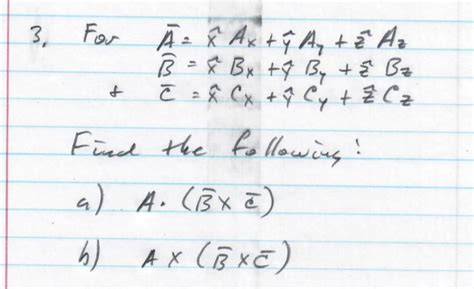 3. For A̅ = x̂ Ax + ŷ Ay + ẑ Az
B̅ = x̂ Bx + ŷ By + ẑ Bz
+ C̅ = x̂ Cx + ŷ Cy + ẑ Cz
Find the following:
a) A · (B̅ x C̅)
b) A x (B̅ x C̅)